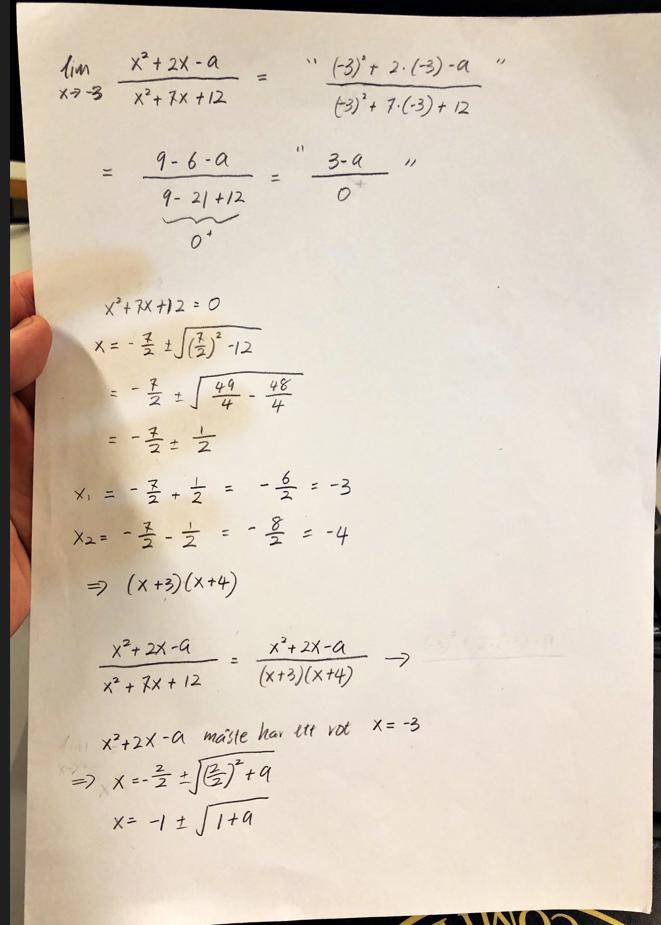 lim x→-3 (x²+2x-a)/(x²+7x+12) = " ((-3)²+2·(-3)-a)/((-3)²+7·(-3)+12) "
= (9-6-a)/(9-21+12) = " (3-a)/0⁺ "
0⁺
x²+7x+12=0
x = -7/2 ± √((7/2)²-12)
= -7/2 ± √(49/4 - 48/4)
= -7/2 ± 1/2
x₁ = -7/2 + 1/2 = -6/2 = -3
x₂ = -7/2 - 1/2 = -8/2 = -4
⇒ (x+3)(x+4)
(x²+2x-a)/(x²+7x+12) = (x²+2x-a)/((x+3)(x+4)) →
x²+2x-a måste har ett rot x = -3
⇒ x = -2/2 ± √((2/2)²+a)
x = -1 ± √(1+a)